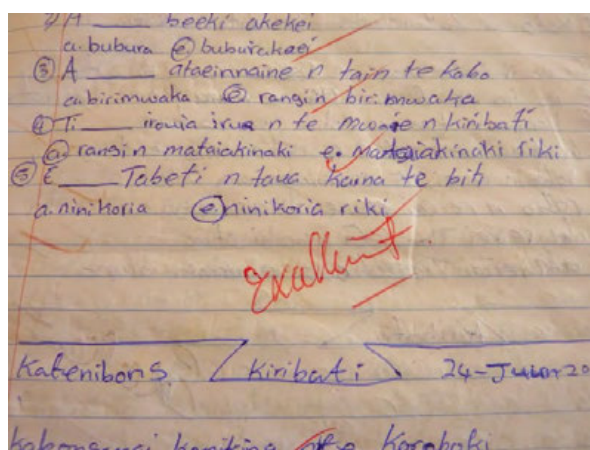 A ____ beeki akekei
a. bubura e buburakaei
3 A ____ ataeinnaine n tain te kabo
a. birimwaka e rangin birimwaka
4 Ti ____ irouia irua n te mwaie n kiribati
a. rangin mataiakinaki e. mataiakinaki riki
5 E ____ Tabeti n taua kaina te biti
a. ninikoria e ninikoria riki
Excellent
Katenibong Kiribati 24-June-20
kanikina Koroboki